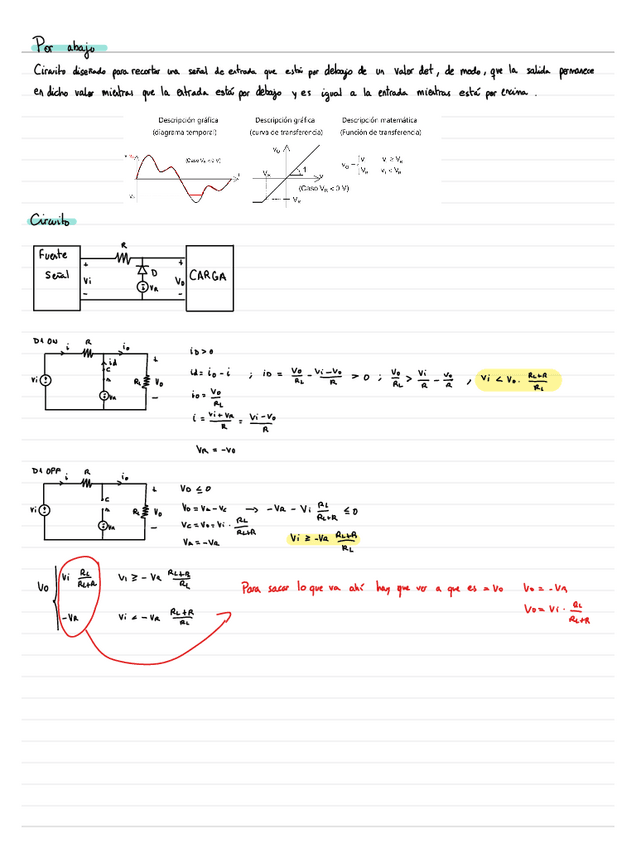 Por abajo
Circuito diseñado para recortar una señal de entrada que está por debajo de un valor det, de modo, que la salida permanece
en dicho valor mientras que la entrada está por debajo y es igual a la entrada mientras está por encima.
Descripción gráfica Descripción gráfica Descripción matemática
(diagrama temporal) (curva de transferencia) (Función de transferencia)
(Caso VR < 0 V)
vO
vO = { vi vi ≥ VR
VR vi < VR
VR 1
(Caso VR < 0 V)
VR
Circuito
Fuente Señal + Vi - R D VR + Vo - CARGA
D1 ON i R io
Vi id C A VR RL + Vo -
iD > 0
id = io - i ; iD = Vo/RL - Vi-Vo/R > 0 ; Vo/RL > Vi/R - Vo/R , Vi < Vo · RL+R/RL
io = Vo/RL
i = Vi+VR/R = Vi-Vo/R
VR = -Vo
D1 OFF i R io
Vi C A VR RL + Vo -
VD ≤ 0
VD = VA - VC → -VR - Vi RL/RL+R ≤ 0
VC = Vo = Vi · RL/RL+R
VA = -VR
Vi ≥ -VR RL+R/RL
Vo { Vi RL/RL+R Vi ≥ - VR RL+R/RL
-VR Vi < -VR RL+R/RL
Para sacar lo que va ahí hay que ver a que es = Vo Vo = -VR
Vo = Vi · RL/RL+R